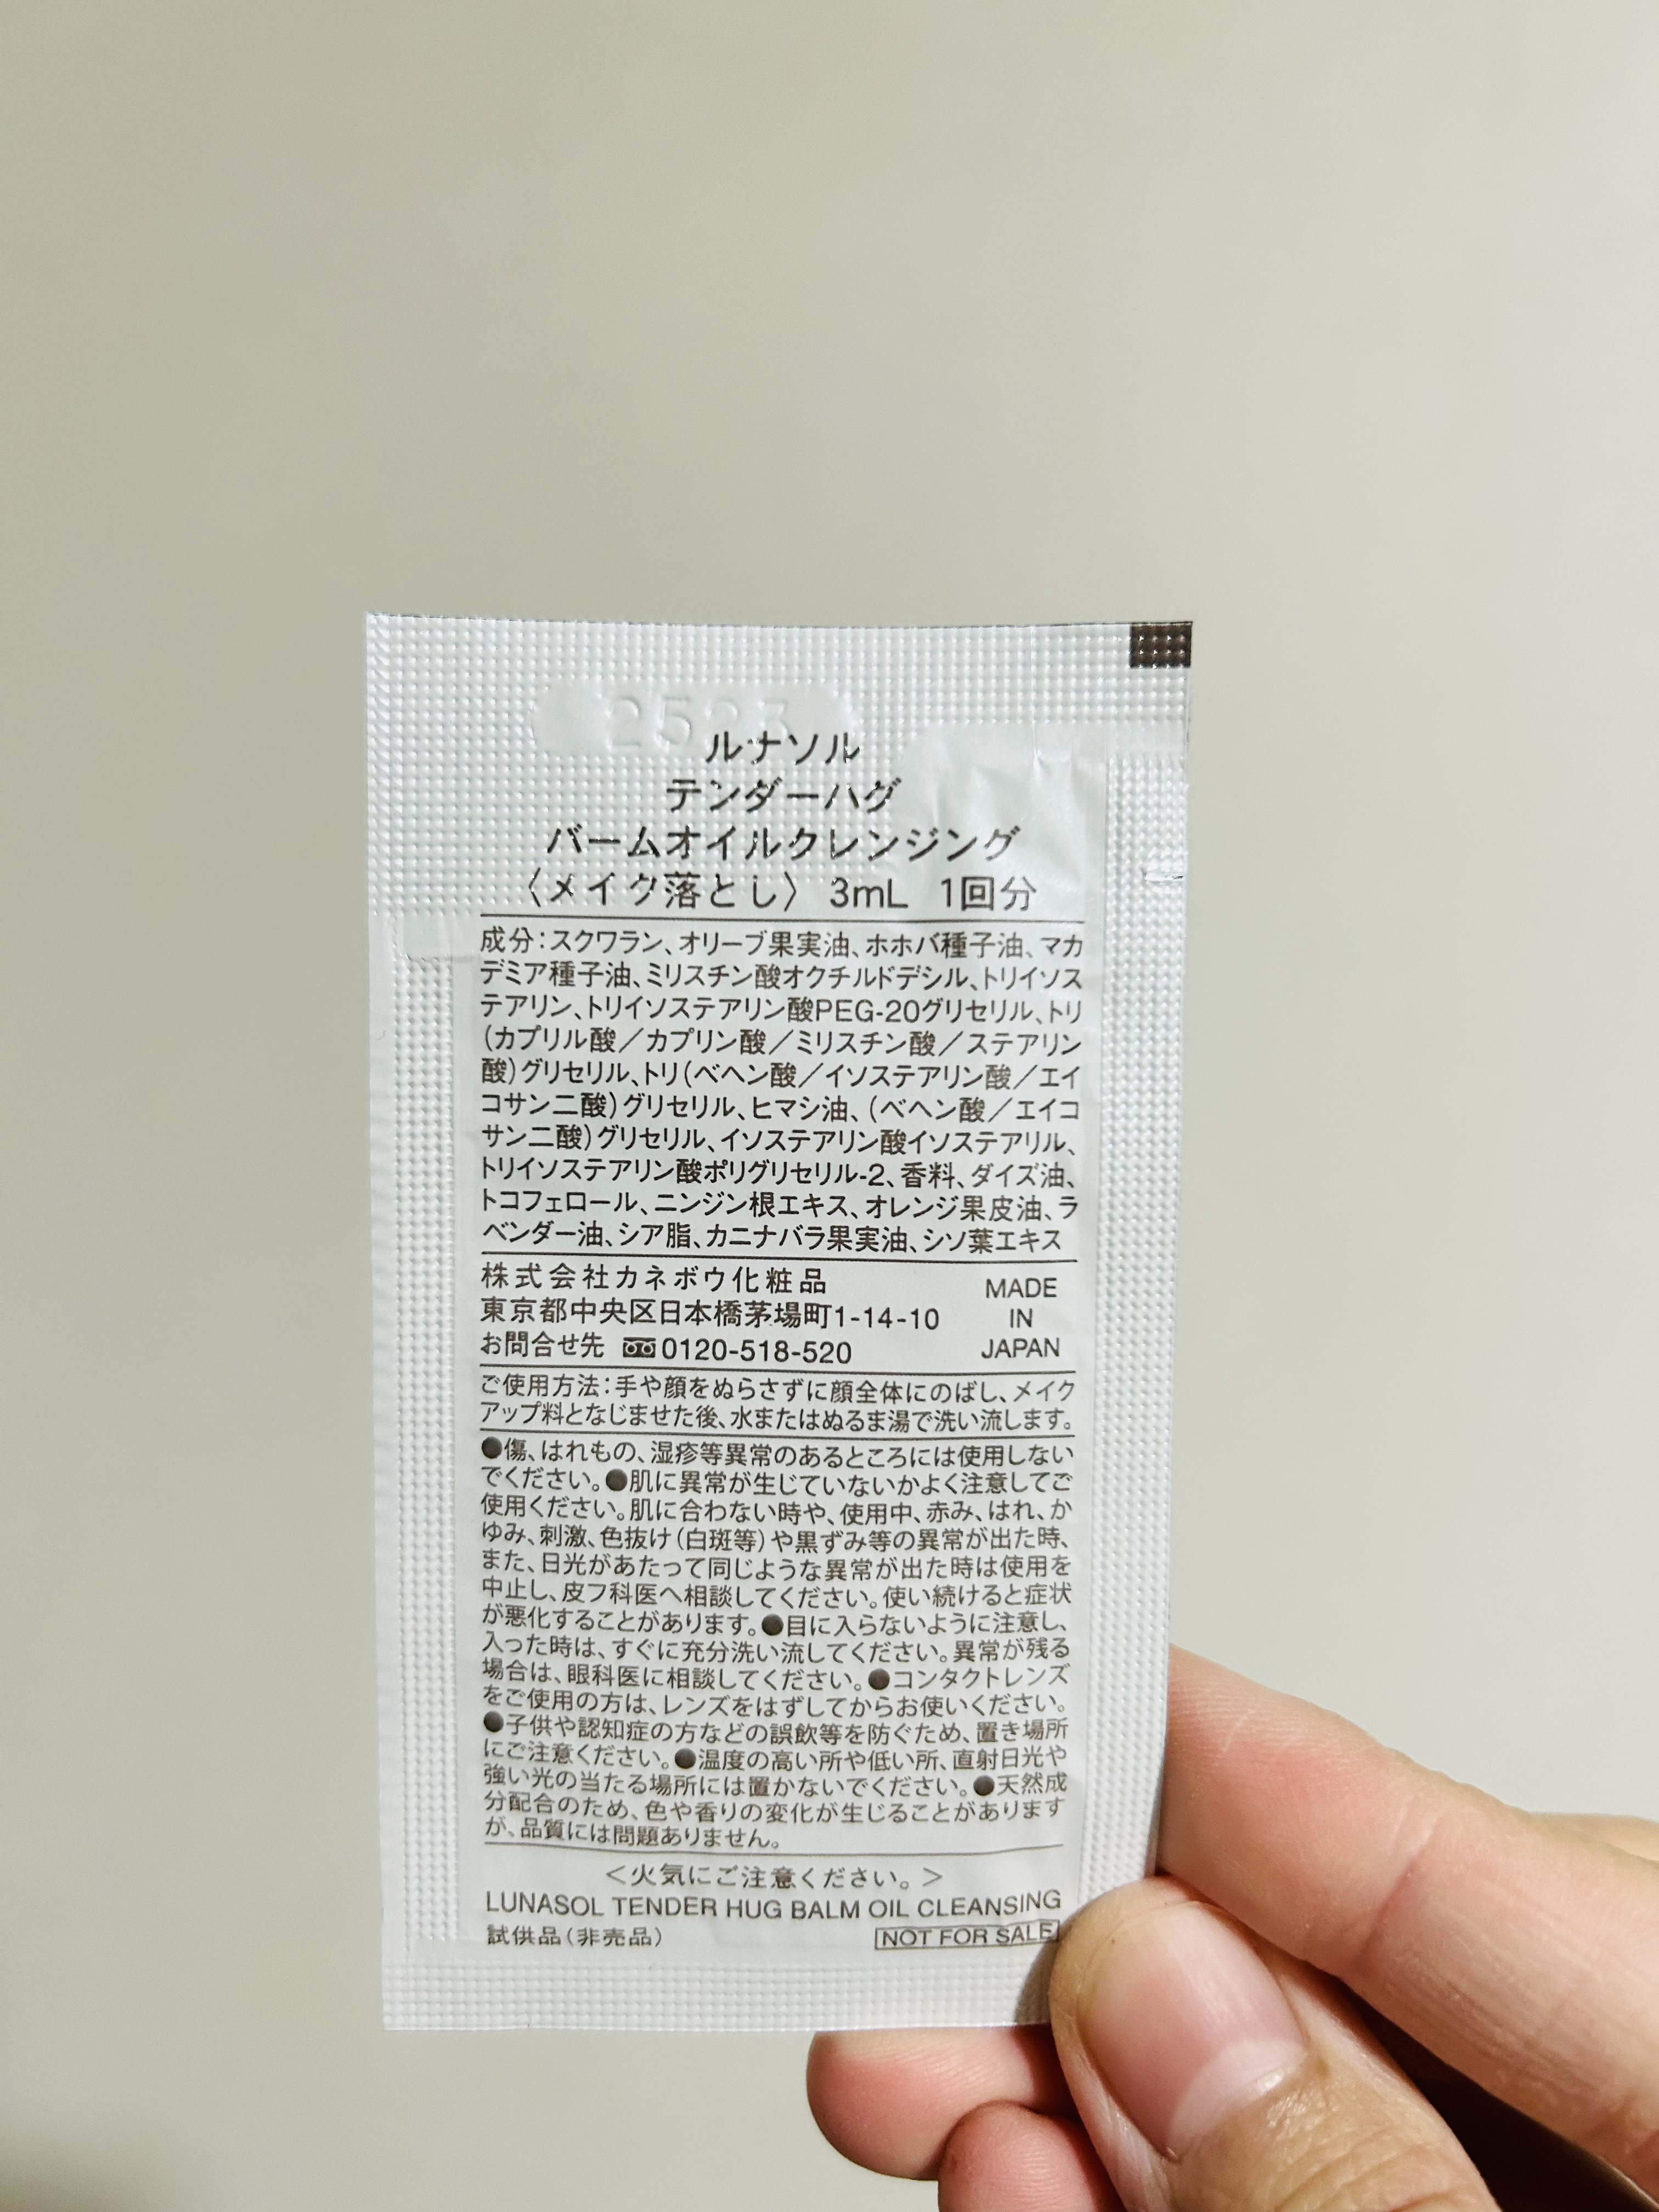 2523
ルナソル
テンダーハグ
バームオイルクレンジング
〈メイク落とし〉 3mL 1回分
成分：スクワラン、オリーブ果実油、ホホバ種子油、マカ
デミア種子油、ミリスチン酸オクチルドデシル、トリイソス
テアリン、トリイソステアリン酸PEG-20グリセリル、トリ
（カプリル酸／カプリン酸／ミリスチン酸／ステアリン
酸）グリセリル、トリ（ベヘン酸／イソステアリン酸／エイ
コサン二酸）グリセリル、ヒマシ油、（ベヘン酸／エイコ
サン二酸）グリセリル、イソステアリン酸イソステアリル、
トリイソステアリン酸ポリグリセリル-2、香料、ダイズ油、
トコフェロール、ニンジン根エキス、オレンジ果皮油、ラ
ベンダー油、シア脂、カニナバラ果実油、シソ葉エキス
株式会社カネボウ化粧品
東京都中央区日本橋茅場町1-14-10
お問合せ先 0120-518-520
MADE
IN
JAPAN
ご使用方法：手や顔をぬらさずに顔全体にのばし、メイク
アップ料となじませた後、水またはぬるま湯で洗い流します。
●傷、はれもの、湿疹等異常のあるところには使用しない
でください。●肌に異常が生じていないかよく注意してご
使用ください。肌に合わない時や、使用中、赤み、はれ、か
ゆみ、刺激、色抜け（白斑等）や黒ずみ等の異常が出た時、
また、日光があたって同じような異常が出た時は使用を
中止し、皮フ科医へ相談してください。使い続けると症状
が悪化することがあります。●目に入らないように注意し、
入った時は、すぐに充分洗い流してください。異常が残る
場合は、眼科医に相談してください。●コンタクトレンズ
をご使用の方は、レンズをはずしてからお使いください。
●子供や認知症の方などの誤飲等を防ぐため、置き場所
にご注意ください。●温度の高い所や低い所、直射日光や
強い光の当たる場所には置かないでください。●天然成
分配合のため、色や香りの変化が生じることがあります
が、品質には問題ありません。
＜火気にご注意ください。＞
LUNASOL TENDER HUG BALM OIL CLEANSING
試供品（非売品） NOT FOR SALE